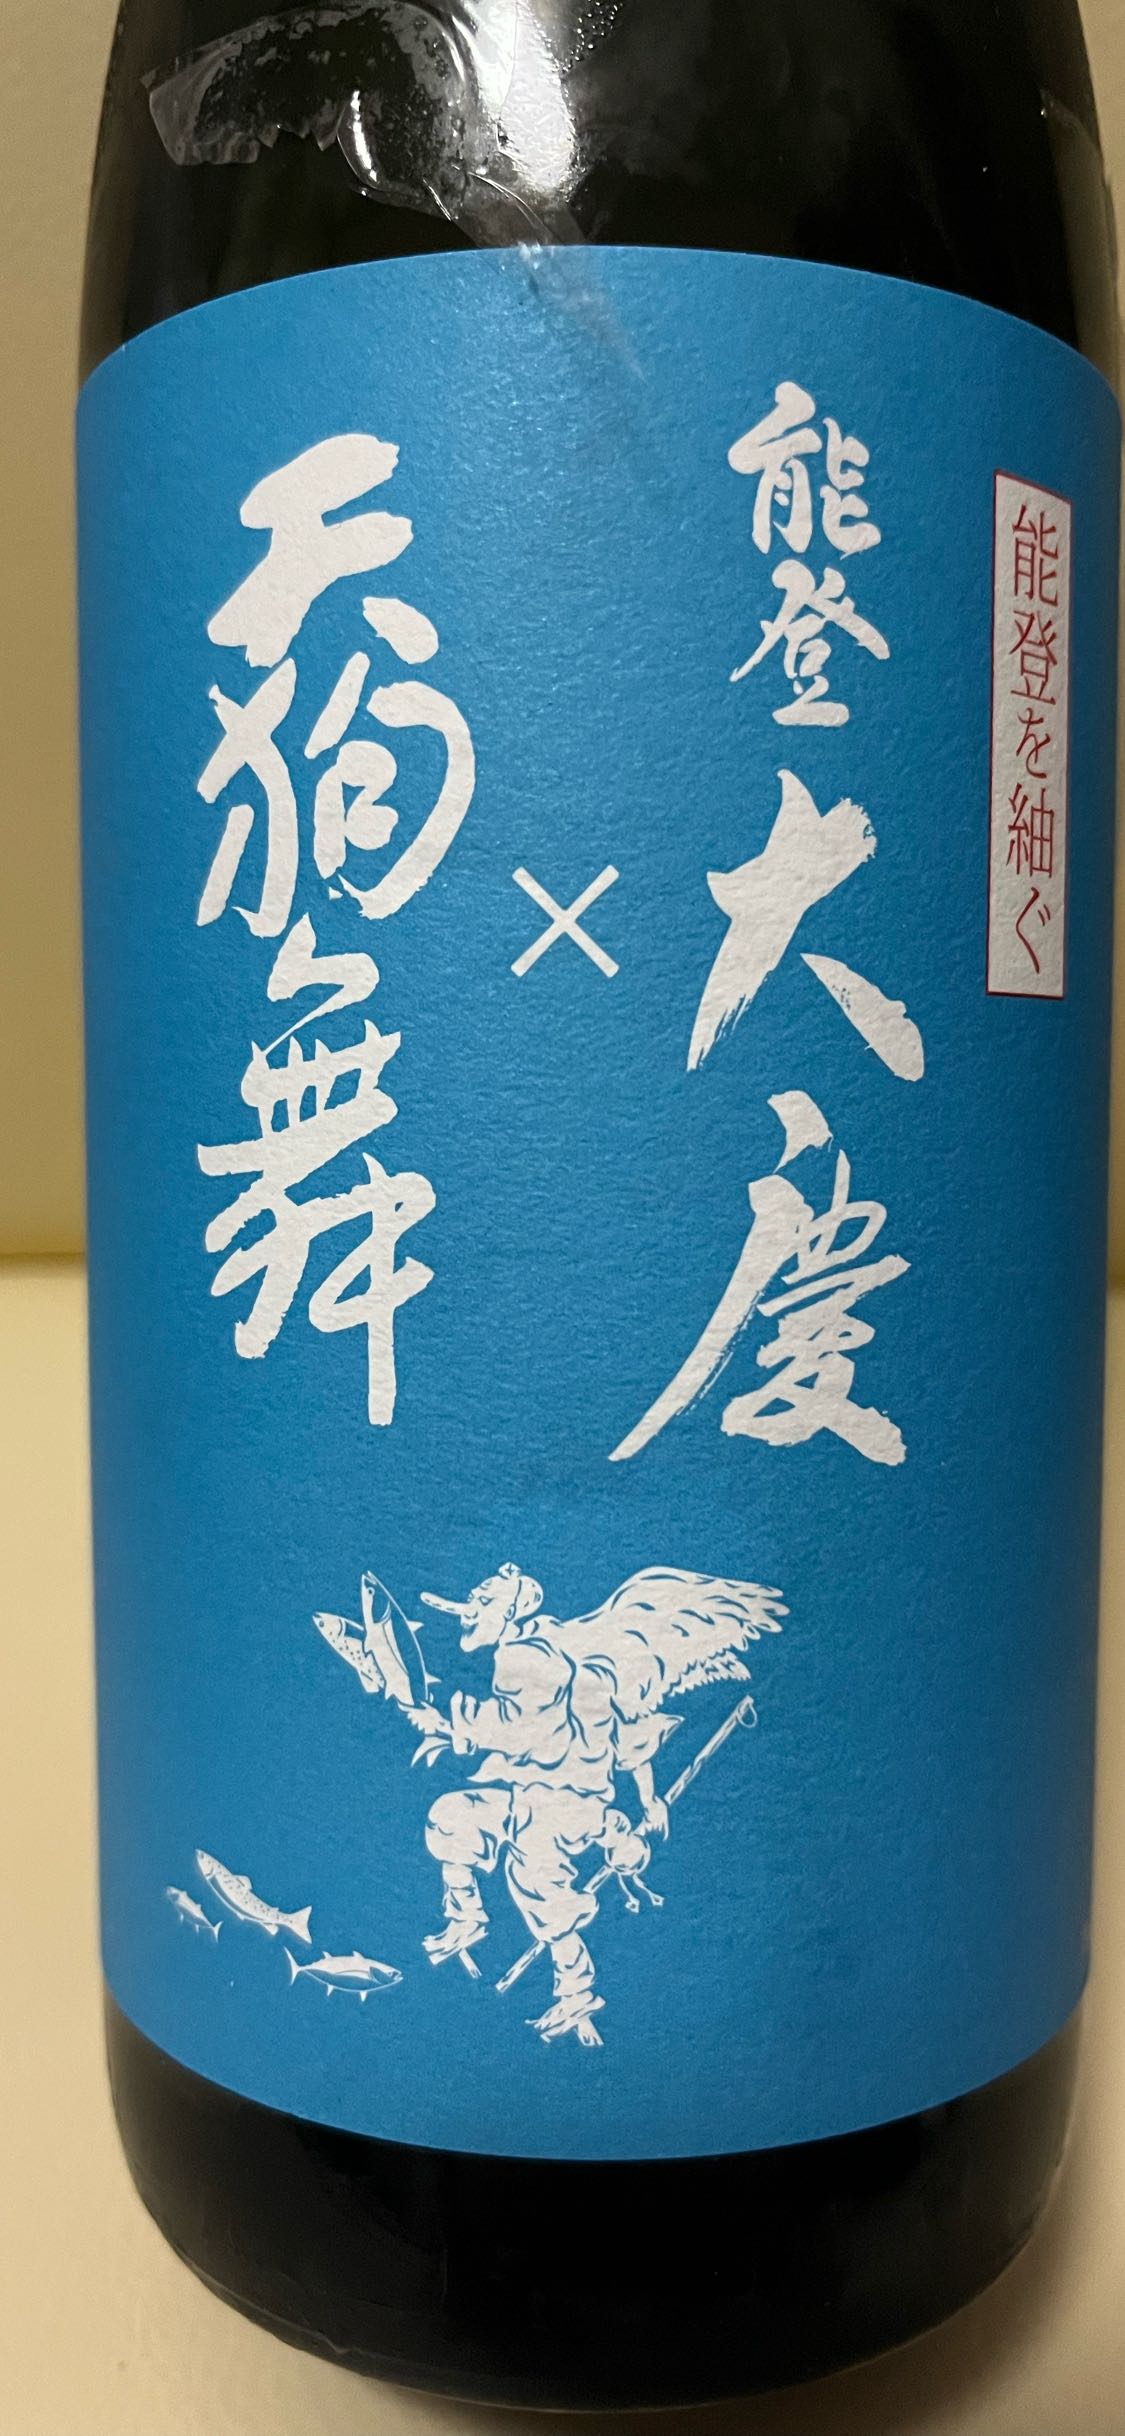 能登を紬ぐ
能登大慶
×
天狗舞